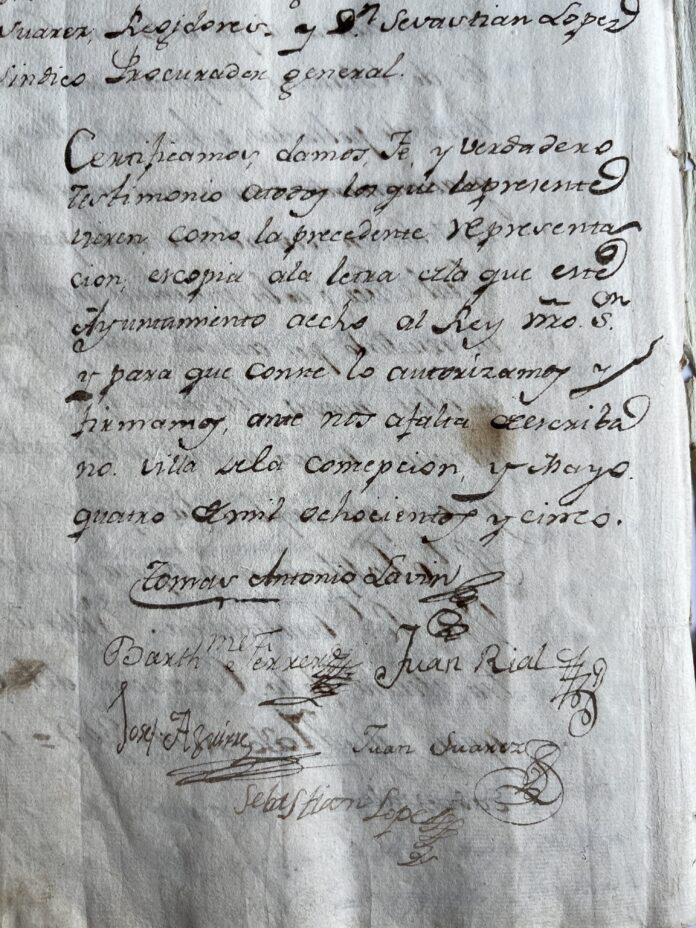 Suarez, Regidores. y Dn. Sevastian Lopez
Sindico Procurador general.
Certificamos, damos Fe, y verdadero
Testimonio atodos los que lapresente
vieren como la precedente representa
cion, escopia ala letra dela que este
Ayuntamiento aecho al Rey nro. Sn.
y para que conste lo autorizamos y
firmamos, ante nos afalta deescriba
no. Villa dela Comcepcion, y Mayo.
quatro demil ochocientos y cinco.
Tomas Antonio Lavin
Barthme Ferrer
Juan Rial
Josef Aguirre
Juan Suarez
Sebastian Lopez